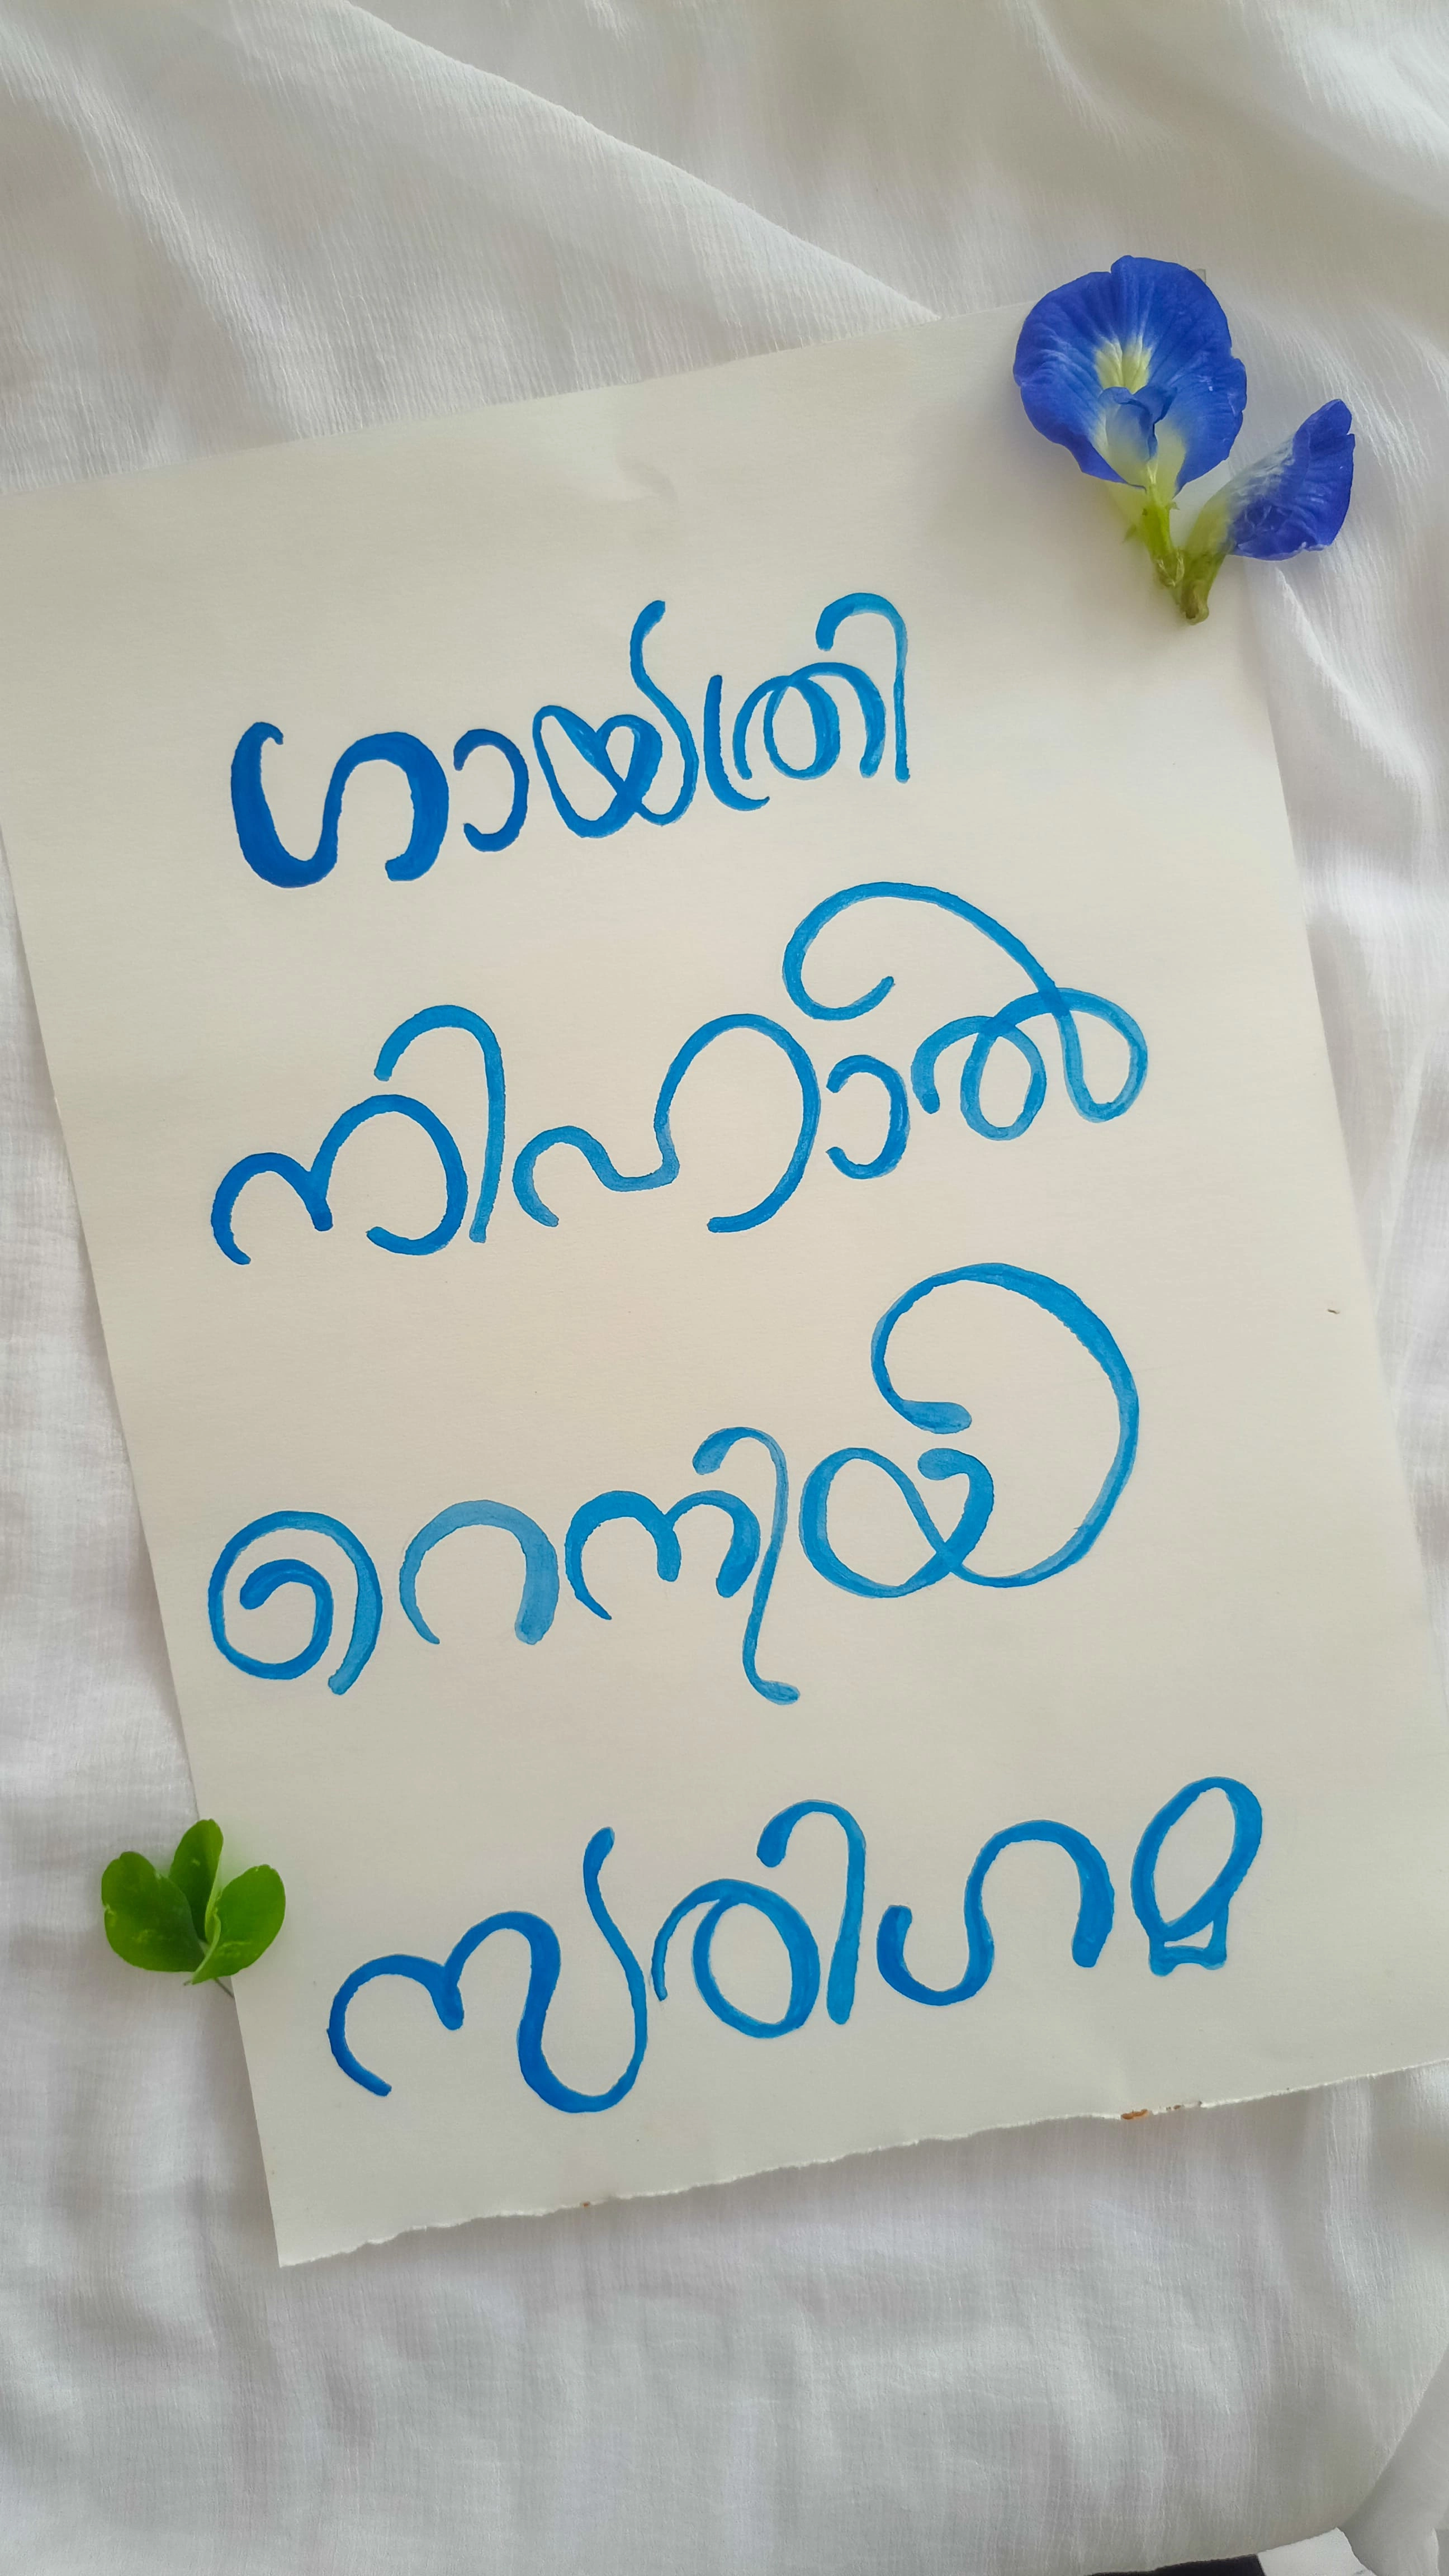 ഗായത്രി
നിഹാൽ
റെനിയ
സരിഗമ